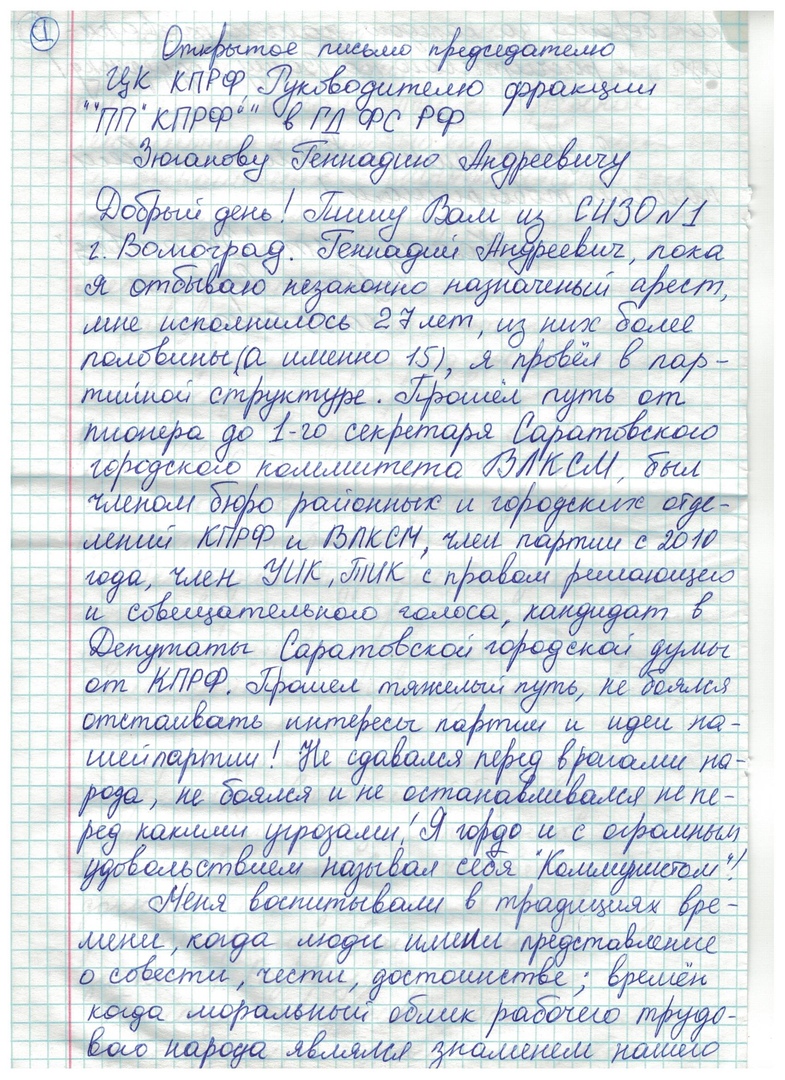 1
Открытое письмо председателю
ЦК КПРФ, Руководителю фракции
""ПП "КПРФ"" в ГД ФС РФ
Зюганову Геннадию Андреевичу
Добрый день! Пишу Вам из СИЗО N1
г. Волгоград. Геннадий Андреевич, пока
я отбываю незаконно назначеный арест,
мне исполнилось 27 лет, из них более
половины (а именно 15), я провёл в пар-
тийной структуре. Прошёл путь от
пионера до 1-го секретаря Саратовского
городского комитета ВЛКСМ, был
членом бюро районных и городских отде-
лений КПРФ и ВЛКСМ, член партии с 2010
года, член УИК, ТИК с правом решающего
и совещательного голоса, кандидат в
Депутаты Саратовской городской думы
от КПРФ. Прошел тяжелый путь, не боялся
отстаивать интересы партии и идеи на-
шей партии! Не сдавался перед врагами на-
рода, не боялся и не останавливался не пе-
ред какими угрозами! Я гордо и с огромным
удовольствием называл себя "Коммунистом"!
Меня воспитывали в традициях вре-
мени, когда люди имели представление
о совести, чести, достоинстве; времён
когда моральный облик рабочего трудо-
вого народа являлся знаменем нашего